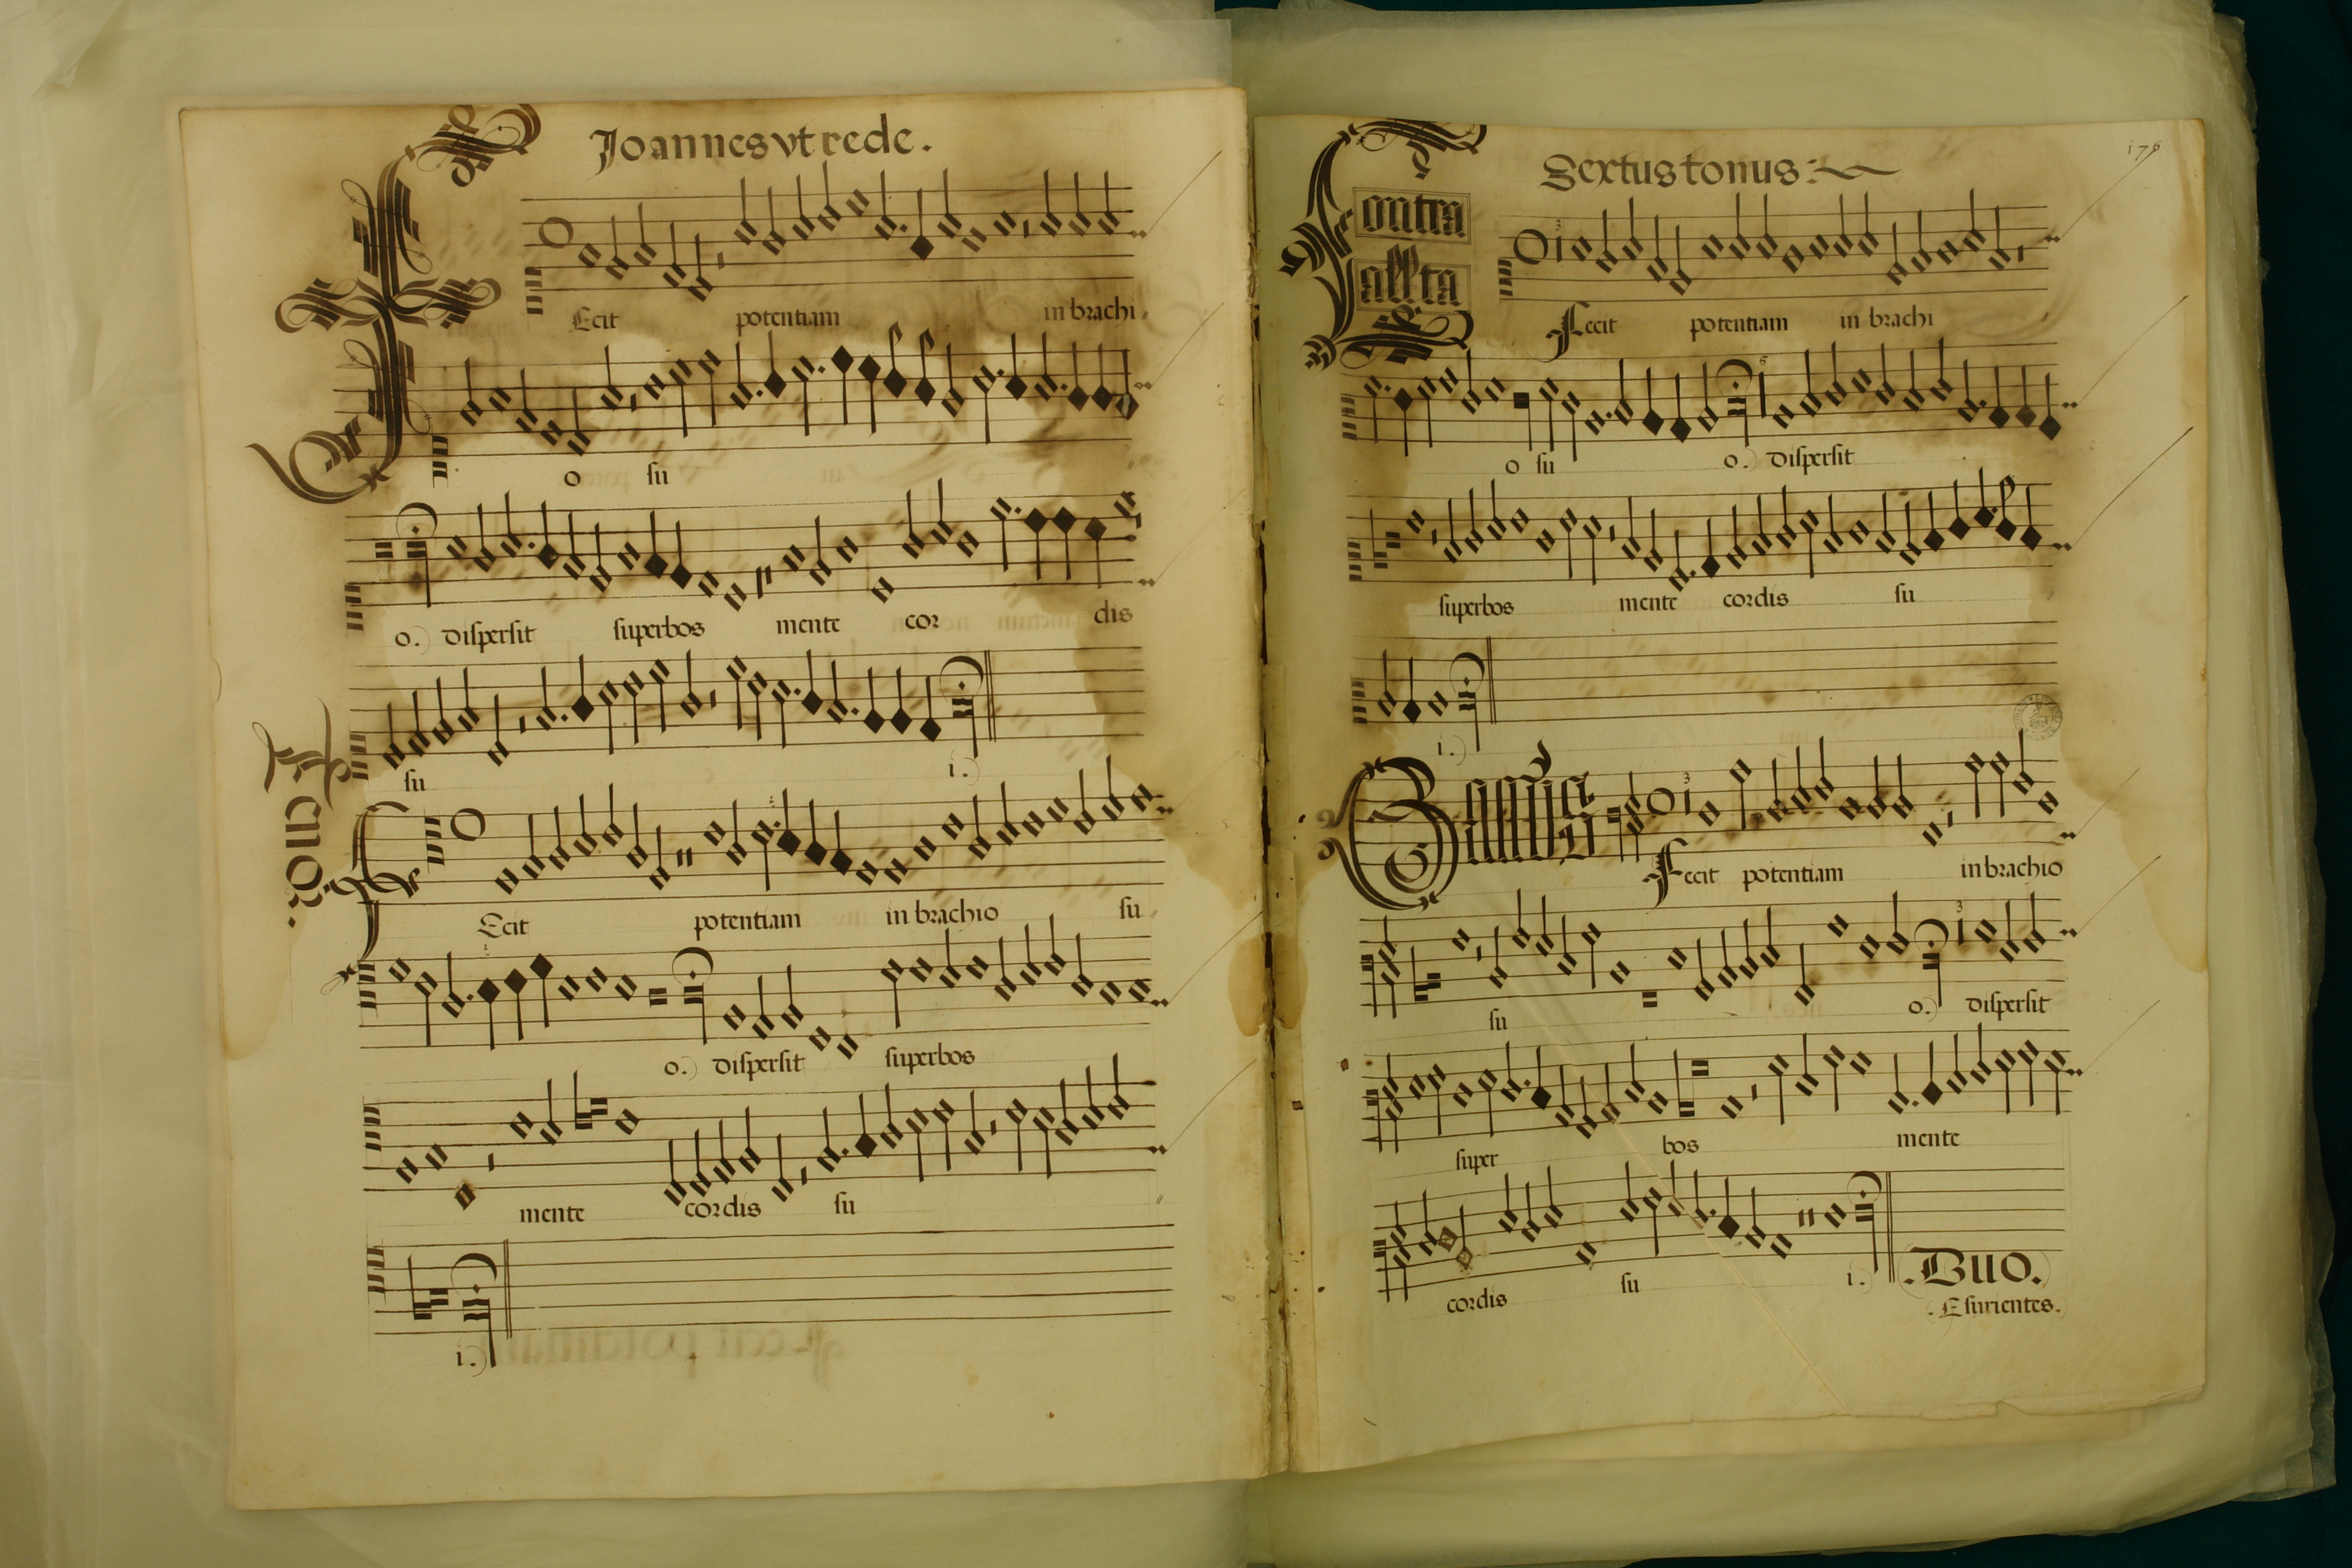 Joannes vtrede.
Fecit potentiam in brachi
o su
o. dispersit superbos mente cor dis
su i.
Tenor.
Fecit potentiam in brachio su
o. dispersit superbos
mente cordis su
i.
Sextus tonus:
176
Contra
allta
Fecit potentiam in brachi
o su o. dispersit
superbos mente cordis su
i.
Fecit potentiam in brachio
su o. dispersit
super bos mente
cordis su i.
.Duo.
.Esurientes.